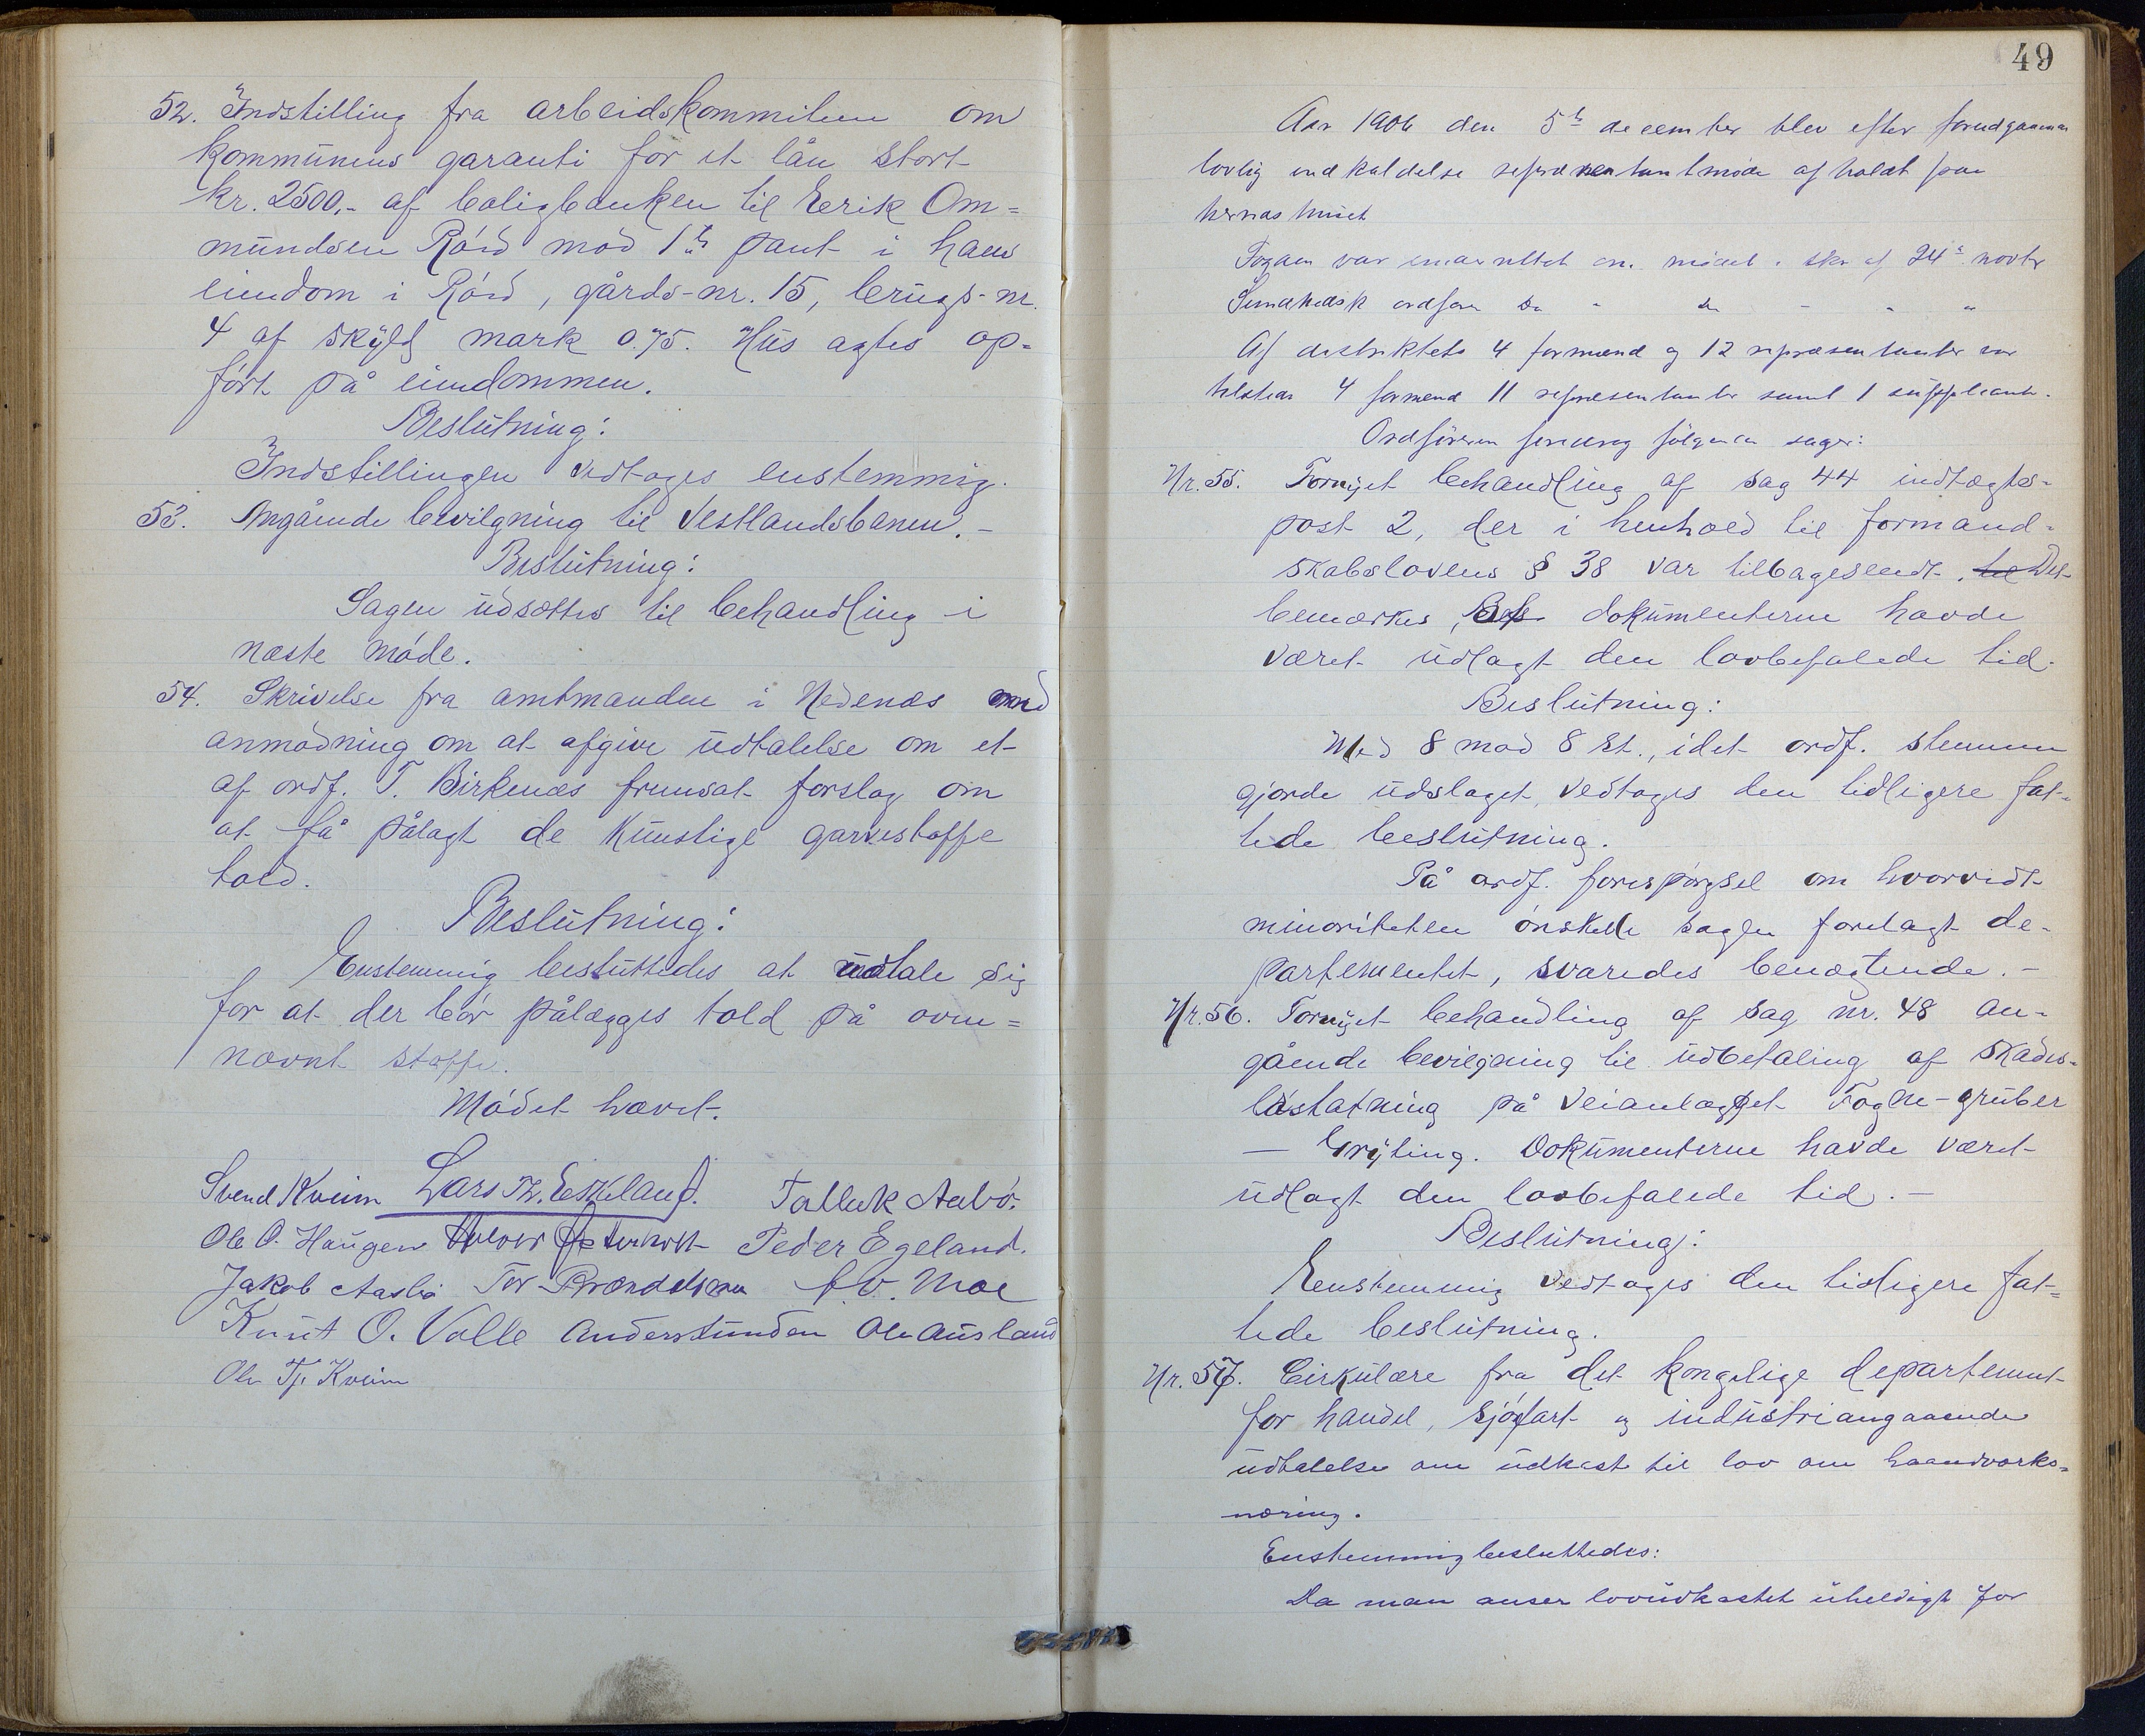 52. Indstilling fra arbeidskommiteen om
kommunens garanti for et lån stort
kr. 2500,- af boligbanken til Eerik Om=
mundsen Röid mod 1ste pant i hans
eiendom i Röid, gårds-nr. 15, brugs-nr.
4 af skyld mark 0.75. Hus agtes op=
fört på eiendommen.
Beslutning:
Indstillingen vedtages enstemmig.
53. Angående bevilgning til Vestlandsbanen.-
Beslutning:
Sagen udsættes til behandling i
næste möde.
54. Skrivelse fra amtmanden i Nedenæs med
anmodning om at afgive udtalelse om et
af ordf. T. Birkenæs fremsat forslag om
at få pålagt de kunstige garvestoffe
told.
Beslutning:
Enstemmig besluttedes at udtale sig
for at der bör pålægges told på oven=
nævnt stoffe.
Mödet hævet.
Svend Kveim Lars Th. Eskeland. Talluk Aabö.
Ole O. Haugen Halvor Peder Egeland.
Jakob Aaslid Tor Moe
Knut O. Valle Anders Sunden Ole Ausland
Ole Tj. Kveim
49
Aar 1906 den 5te december blev efter forudgaaende
lovlig indkaldelse repræsentantmöde afholdt paa
herredshuset
Fogden var underrettet om mödet i skr. af 24de novbr
ordförer Do " do - " "
Af distriktets 4 formænd og 12 repræsentanter var
tilstede 4 formænd 11 repræsentanter samt 1 suppleant.
Ordföreren foredrog fölgende sager:
Nr. 55. Fornyet behandling af sag 44 indtægts-
post 2, der i henhold til formand-
skabslovens § 38 var tilbagesendt. til Det
bemærkes, at dokumenterne havde
været udlagt den lovbefalede tid.
Beslutning:
Med 8 mod 8 st., idet ordf. stemme
gjorde udslaget, vedtages den tidligere fat-
tede beslutning.
På ordf. forespörgsel om hvorvidt
minoriteten önskede sagen forelagt de-
partementet, svaredes benægtende.-
Nr. 56. Fornyet behandling af sag nr. 48 an-
gående bevilgning til udbetaling af skades-
löstatning på veianlægget Fogne-gruber
- Gryting. Dokumenterne havde været
udlagt den lovbefalede tid.-
Beslutning:
Eenstemmig vedtages den tidligere fat-
tede beslutning.
Nr. 57. Cirkulære fra det kongelige departement
for handel, sjöfart og industri angaaende
udtalelse om udkast til lov om haandverks-
næring.
Enstemmig besluttedes:
Da man anser lovudkastet uheldigt for